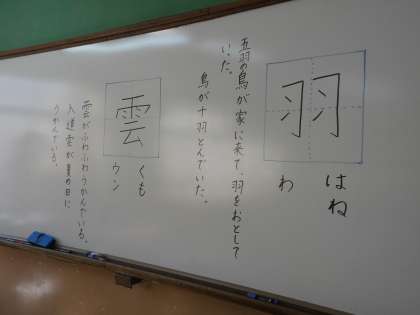 羽
はね
わ
五羽の鳥が家に来て、羽をおとして
いた。
鳥が十羽とんでいた。
雲
くも
ウン
雲がふわふわうかんでいる。
入道雲が夏の日に
うかんでいる。